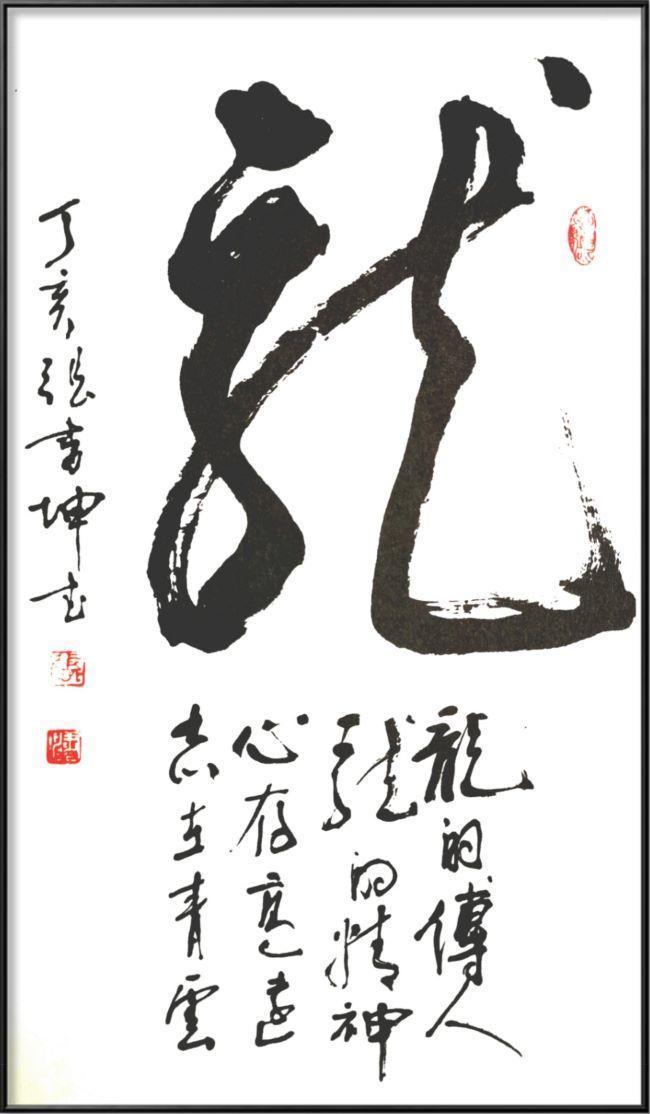 龍
龍的傳人
龍的精神
心存高遠
志在青雲
丁亥張青坤書